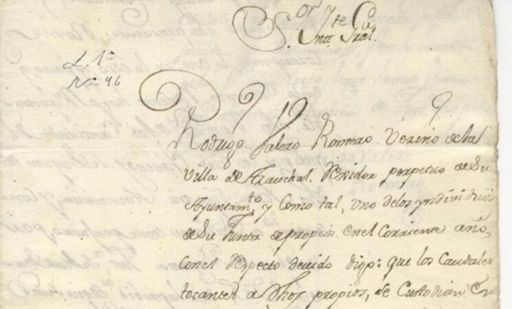 S.or Yte
Gral.
L. 1º
Nº. 46
Rodrigo Valero Romero Vecino de la
Villa de Arauhal, Rexidor perpetuo de Su
Ayuntam.to y como tal, uno delos yndividuos
de Su Junta de propios enel Corriente año,
conel Respecto devido digo: que los Caudales
tocantes a dhos propios, se Custodian en